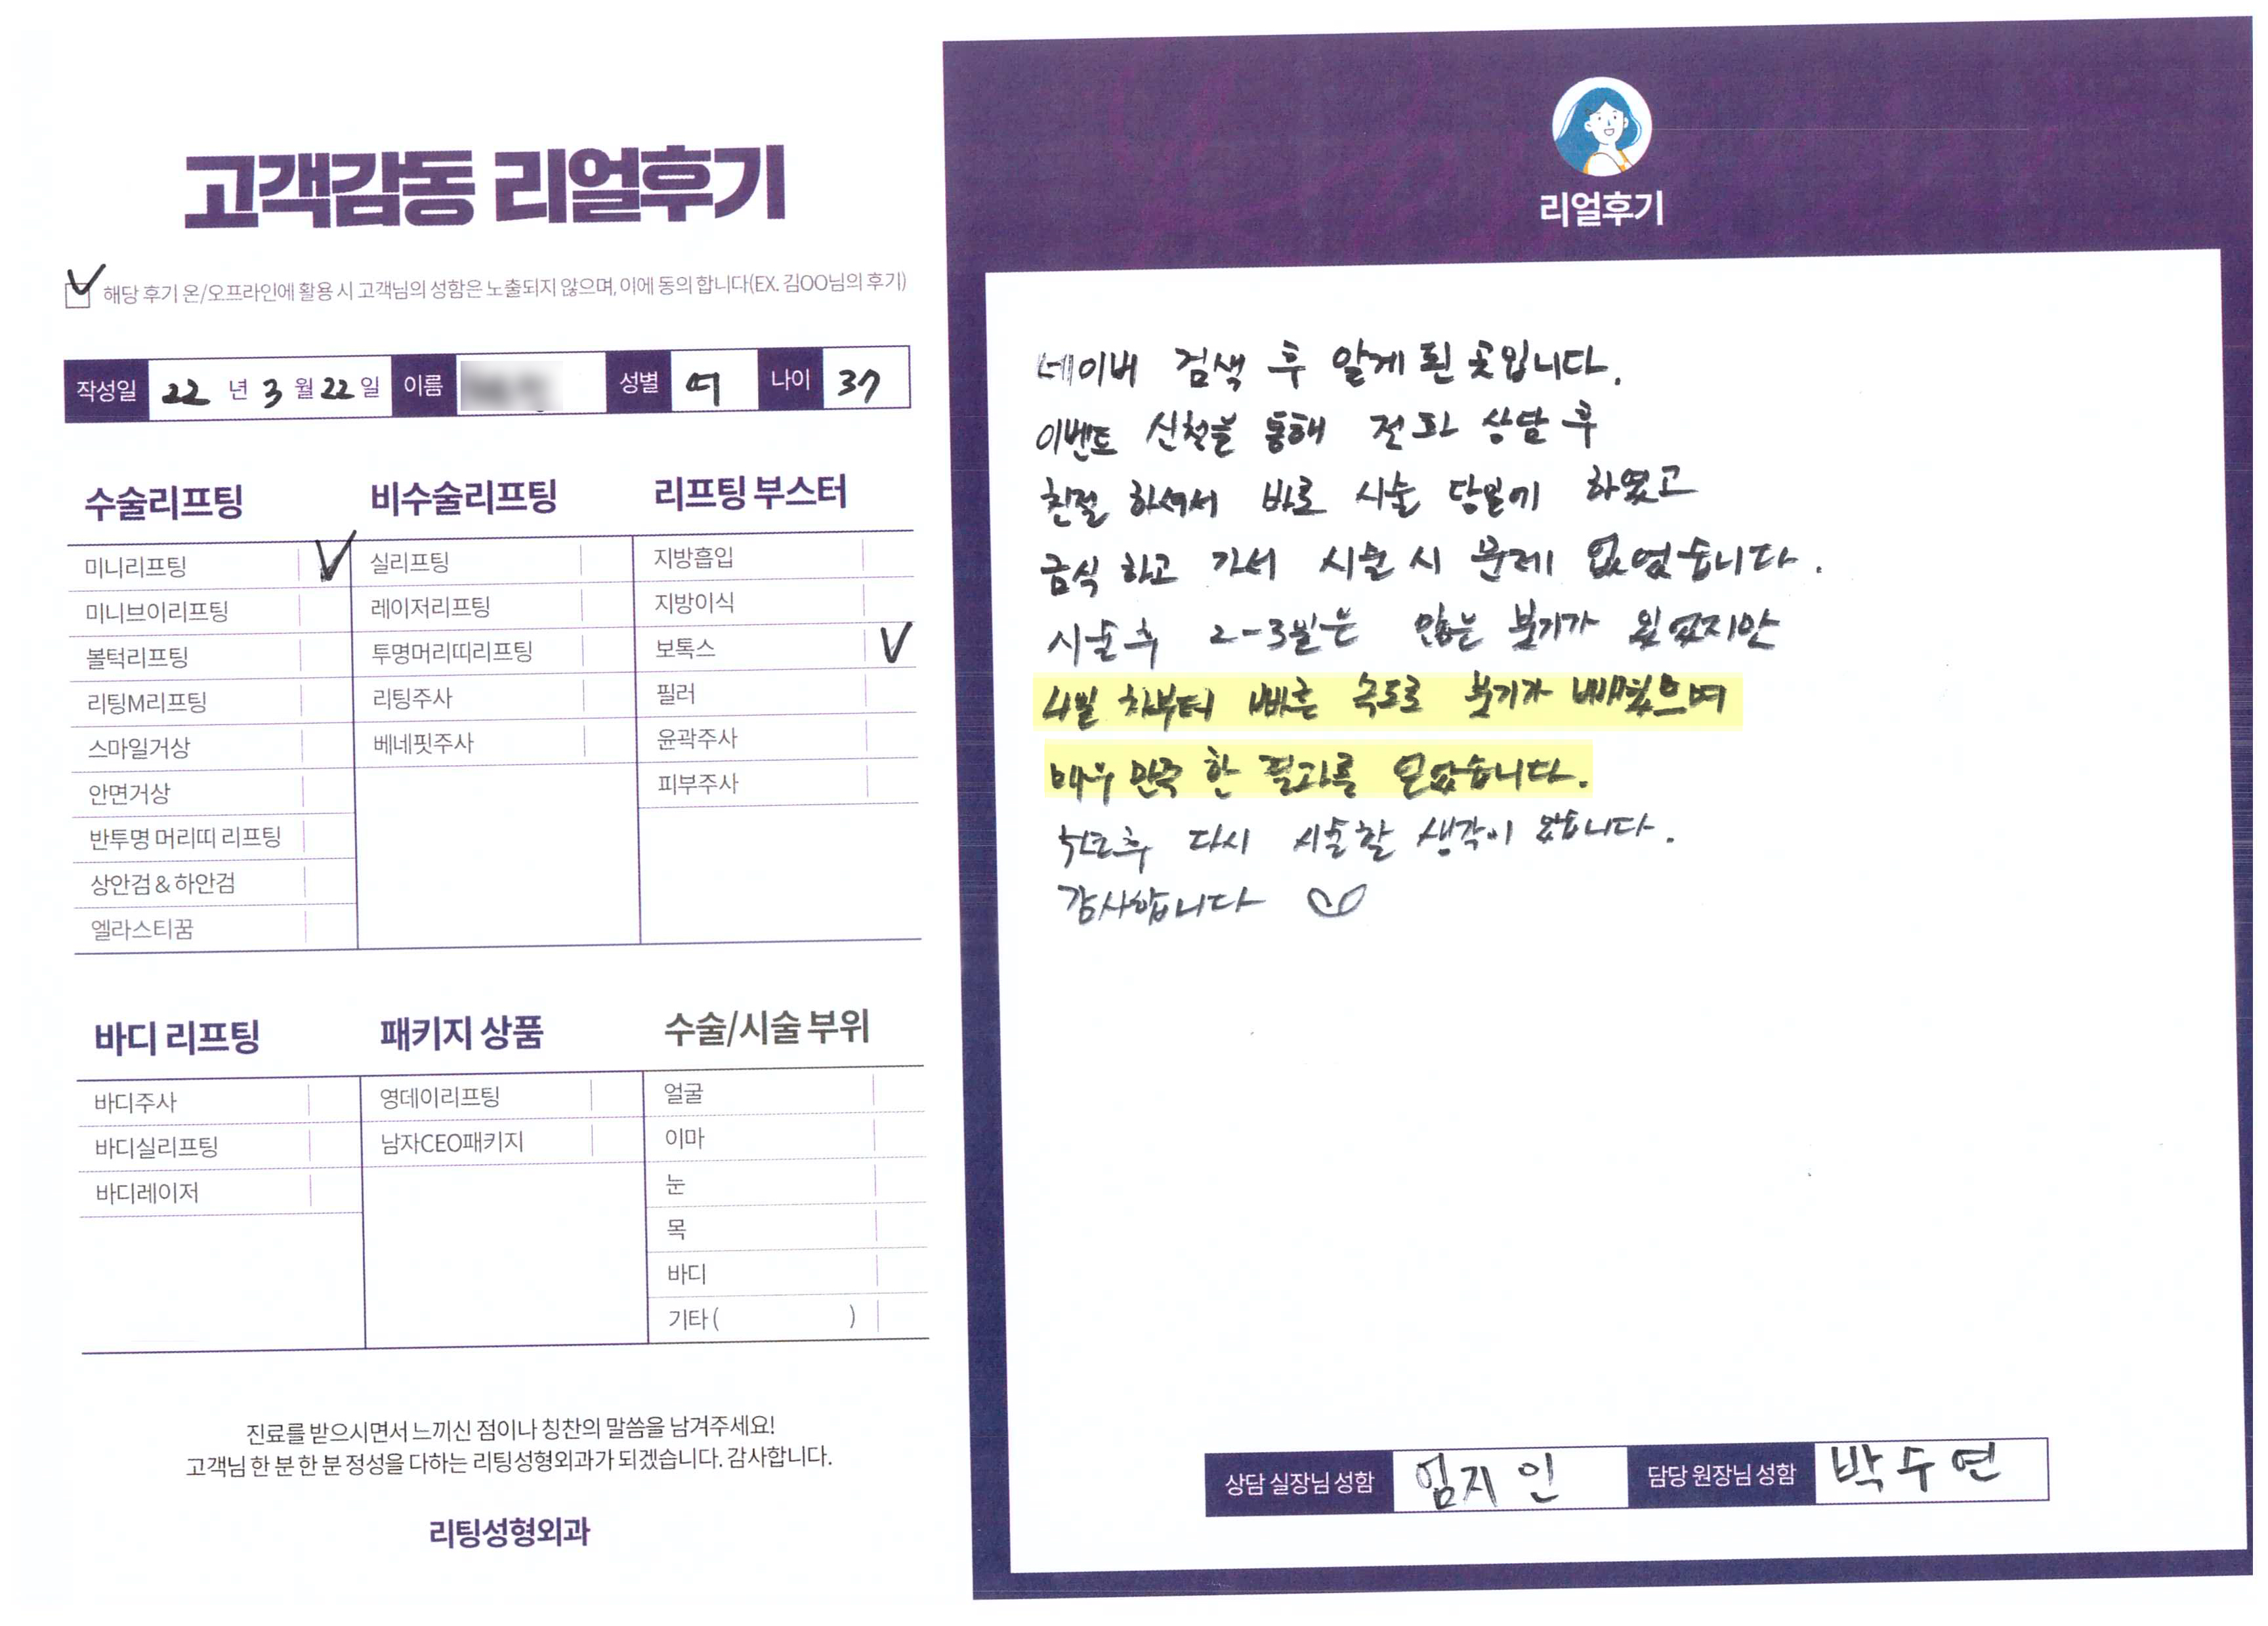 고객감동 리얼후기
해당 후기 온/오프라인에 활용 시 고객님의 성함은 노출되지 않으며, 이에 동의 합니다(EX. 김OO님의 후기)
작성일 22 년 3 월 22 일 이름 성별 여 나이 37
수술리프팅
미니리프팅
미니브이리프팅
볼턱리프팅
리팅M리프팅
스마일거상
안면거상
반투명 머리띠 리프팅
상안검 & 하안검
엘라스티꿈
비수술리프팅
실리프팅
레이저리프팅
투명머리띠리프팅
리팅주사
베네핏주사
리프팅 부스터
지방흡입
지방이식
보톡스
필러
윤곽주사
피부주사
바디 리프팅
바디주사
바디실리프팅
바디레이저
패키지 상품
영데이리프팅
남자CEO패키지
수술/시술 부위
얼굴
이마
눈
목
바디
기타 ( )
진료를 받으시면서 느끼신 점이나 칭찬의 말씀을 남겨주세요!
고객님 한 분 한 분 정성을 다하는 리팅성형외과가 되겠습니다. 감사합니다.
리팅성형외과
리얼후기
네이버 검색 후 알게 된 곳입니다.
이벤트 신청을 통해 전화 상담 후
친절 하셔서 바로 시술 당일에 하였고
금식 하고 가서 시술 시 문제 없었습니다.
시술후 2-3일은 많은 붓기가 있었지만
4일 차부터 빠른 속도로 붓기가 빠졌으며
매우 만족 한 결과를 얻었습니다.
다시 시술할 생각이 있습니다.
감사합니다
상담 실장님 성함 임지인 담당 원장님 성함 박수연